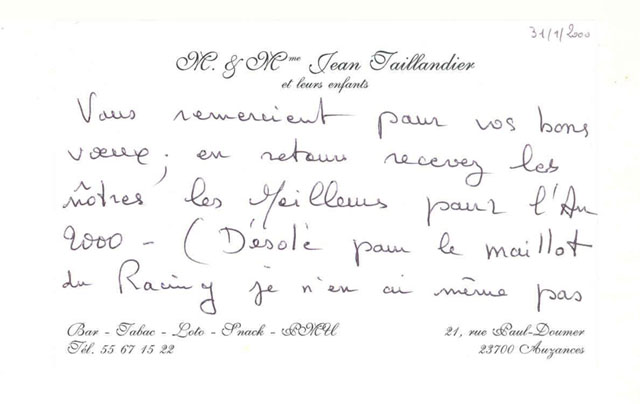 31/1/2000
M. & Mme Jean Taillandier
et leurs enfants
Vous remercient pour vos bons
vœux ; en retour recevez les
nôtres les Meilleurs pour l'An
2000 - ( Désolé pour le maillot
du Racing je n'en ai même pas
Bar - Tabac - Loto - Snack - PMU
21, rue Paul-Doumer
Tél. 55 67 15 22
23700 Auzances